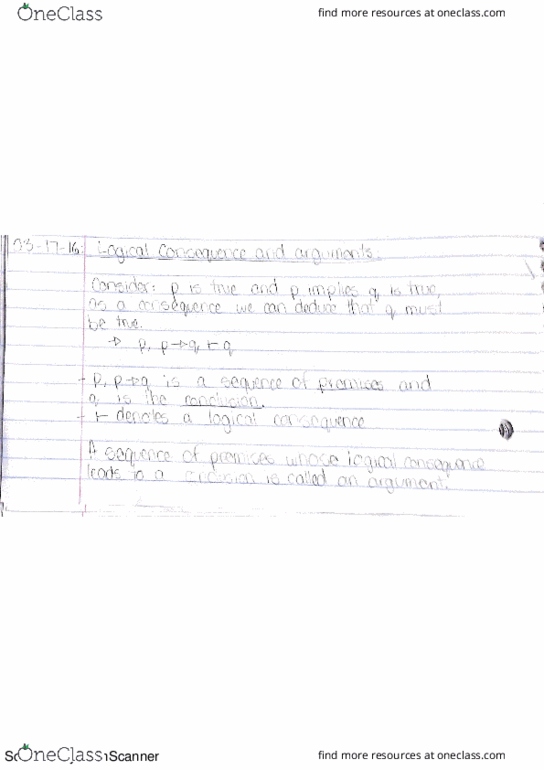 OneClass find more resources at oneclass.com
03-17-16: Logical Consequence and arguments.
Consider: p is true and p implies q is true,
as a consequence we can deduce that q must
be true.
→ p, p→q ⊢ q
- p, p→q is a sequence of premises and
q is the conclusion.
- ⊢ denotes a logical consequence
A sequence of premises whose logical consequence
leads to a conclusion is called an argument.
OneClass Scanner find more resources at oneclass.com